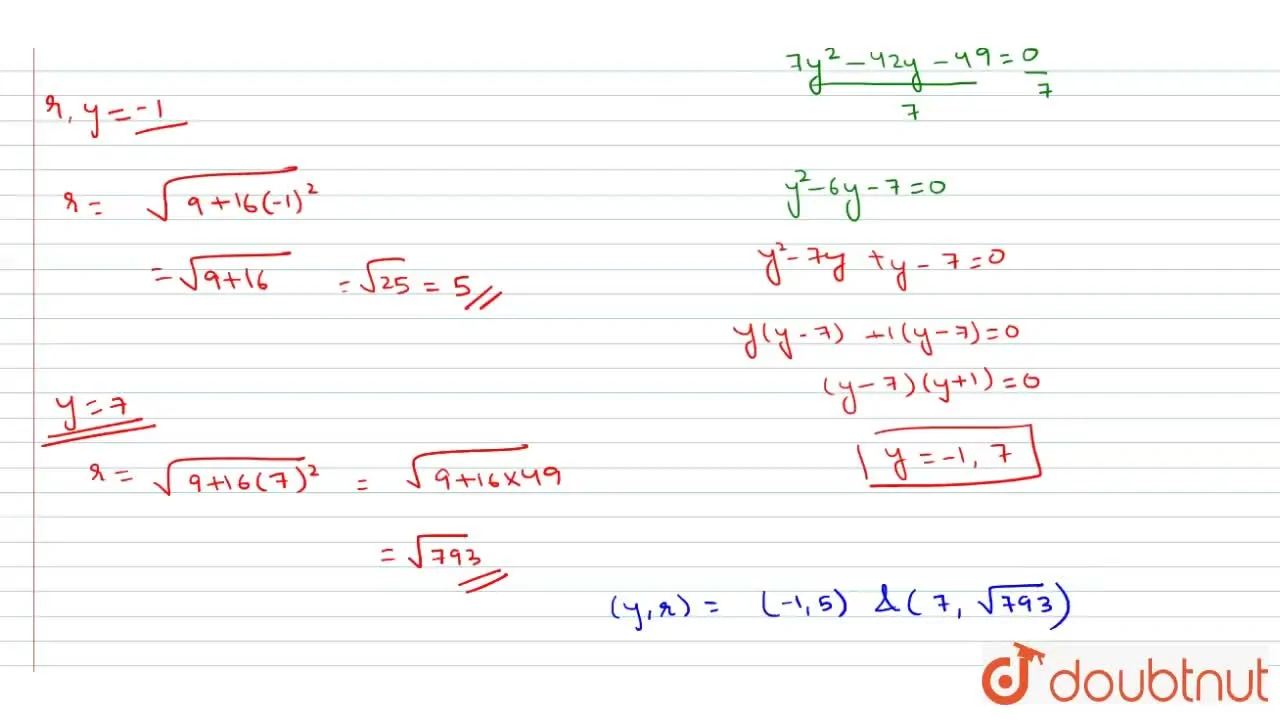 r, y = -1
r = √(9+16(-1)²)
= √(9+16) = √25 = 5
y = 7
r = √(9+16(7)²) = √(9+16×49)
= √793
7y² - 42y - 49 = 0
7 7
y² - 6y - 7 = 0
y² - 7y + y - 7 = 0
y(y-7) +1(y-7) = 0
(y-7)(y+1) = 0
y = -1, 7
(y, r) = (-1, 5) & (7, √793)
doubtnut